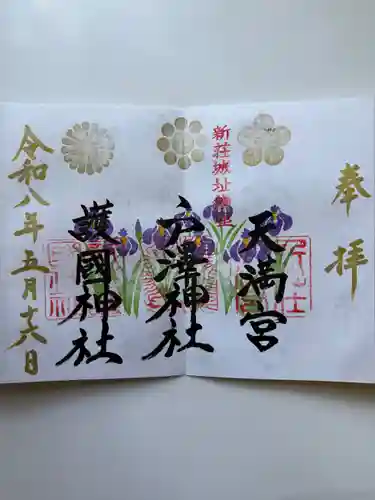 奉拝
天満宮
新荘城址鎮座
戸澤神社
護國神社
令和八年五月十六日